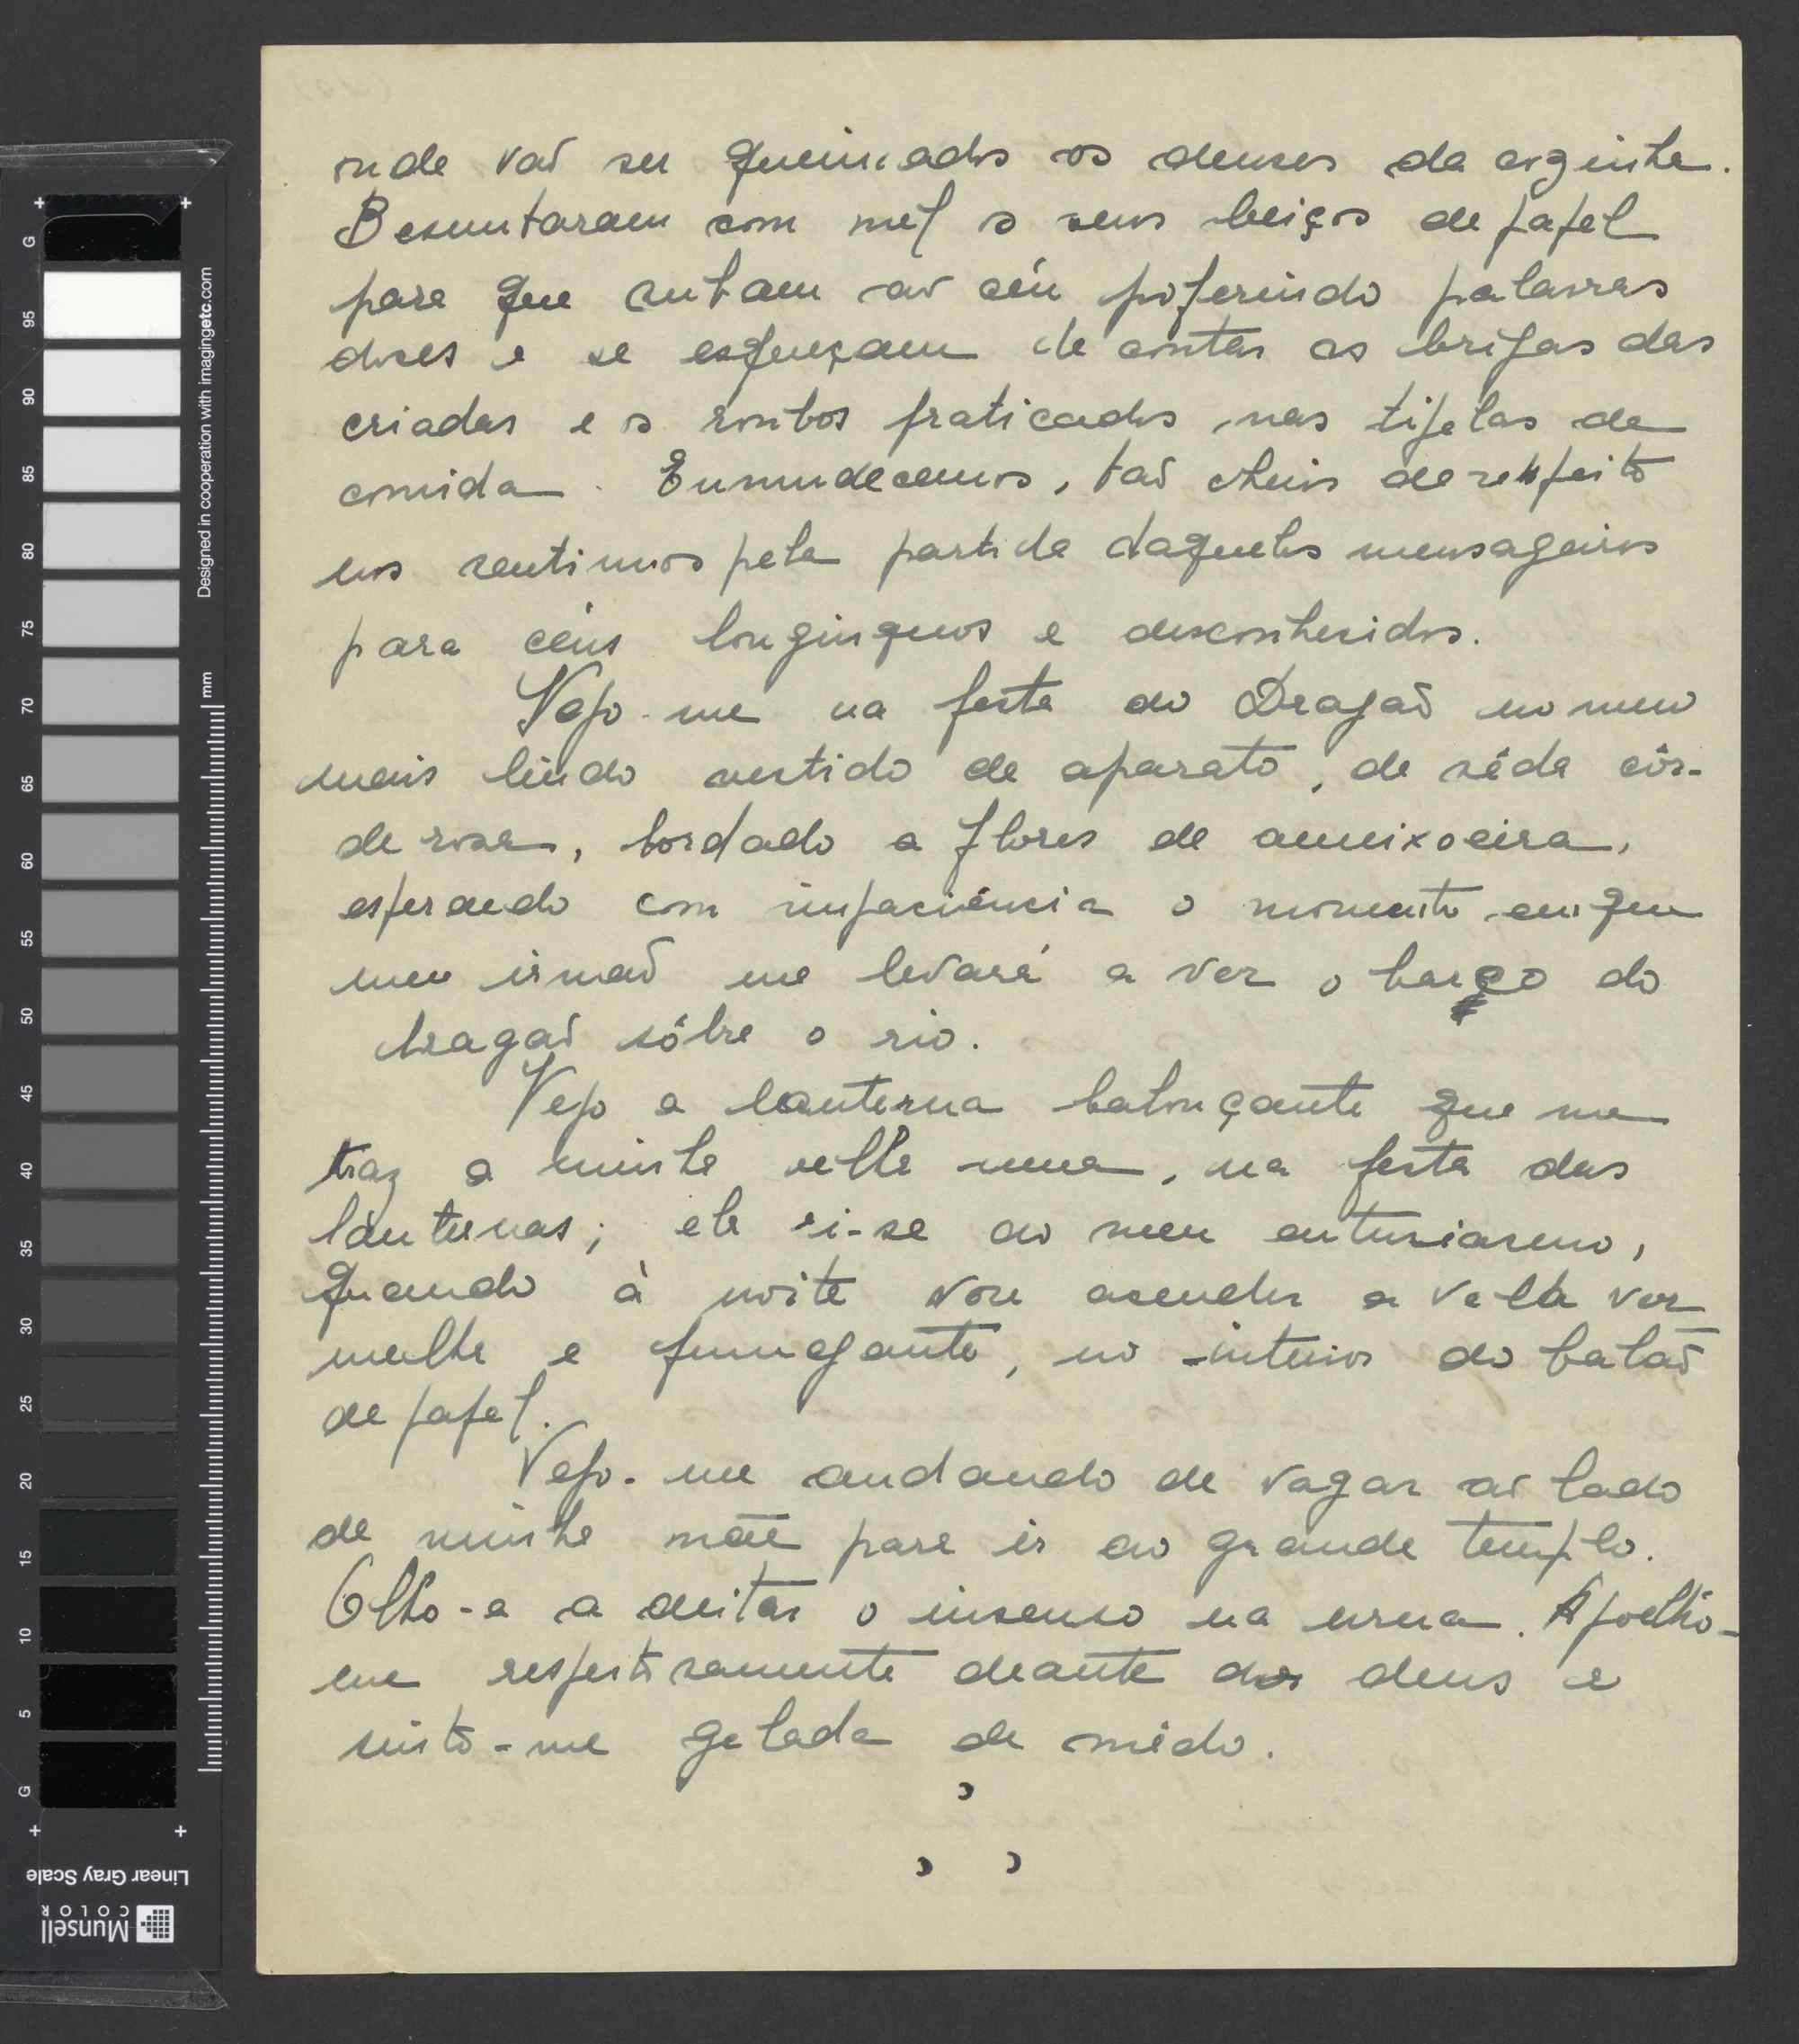 onde vaõ ser queimados os deuses da cozinha.
Besuntaram com mel os seus beiços de papel
para que subam ao céu proferindo palavras
doces e se esqueçam de contar as brigas das
criadas e os roubos praticados nas tijelas da
comida. Enmudecemos, taõ cheios de respeito
nos sentimos pela partida daqueles mensageiros
para céus longinquos e desconhecidos.
Vejo-me na festa do Dragaõ no meu
mais lindo vestido de aparato, de sêda côr-
de rosa, bordado a flores de ameixoeira,
esperando com impaciência o momento em que
meu irmaõ me levará a ver o barco do
dragaõ sôbre o rio.
Vejo a lanterna baloiçante que me
traz a minha velha ama, na festa das
lanternas; ela ri-se do meu entusiasmo,
quando à noite vou acender a vela ver-
melha e fumegante, no interior do balaõ
de papel.
Vejo-me andando de vagar ao lado
de minha mãe para ir ao grande templo.
Olho-a a deitar o incenso na urna. Ajoelho-
me respeitosamente deante do deus e
sinto-me gelada de mêdo.
G
95
90
85
80
75
70
65
60
55
50
45
40
35
30
25
20
15
10
5
G
mm
Designed in cooperation with imagingetc.com
Linear Gray Scale
Munsell
COLOR